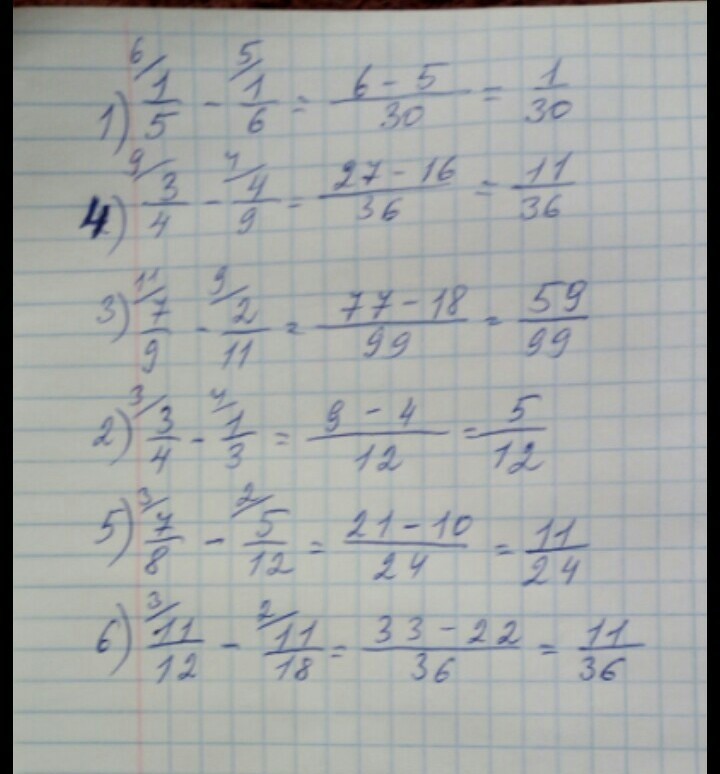 1) ⁶/1/5 - ⁵/1/6 = (6 - 5)/30 = 1/30
4) ⁹/3/4 - ⁴/4/9 = (27 - 16)/36 = 11/36
3) ¹¹/7/9 - ⁹/2/11 = (77 - 18)/99 = 59/99
2) ³/3/4 - ⁴/1/3 = (9 - 4)/12 = 5/12
5) ³/7/8 - ²/5/12 = (21 - 10)/24 = 11/24
6) ³/11/12 - ²/11/18 = (33 - 22)/36 = 11/36